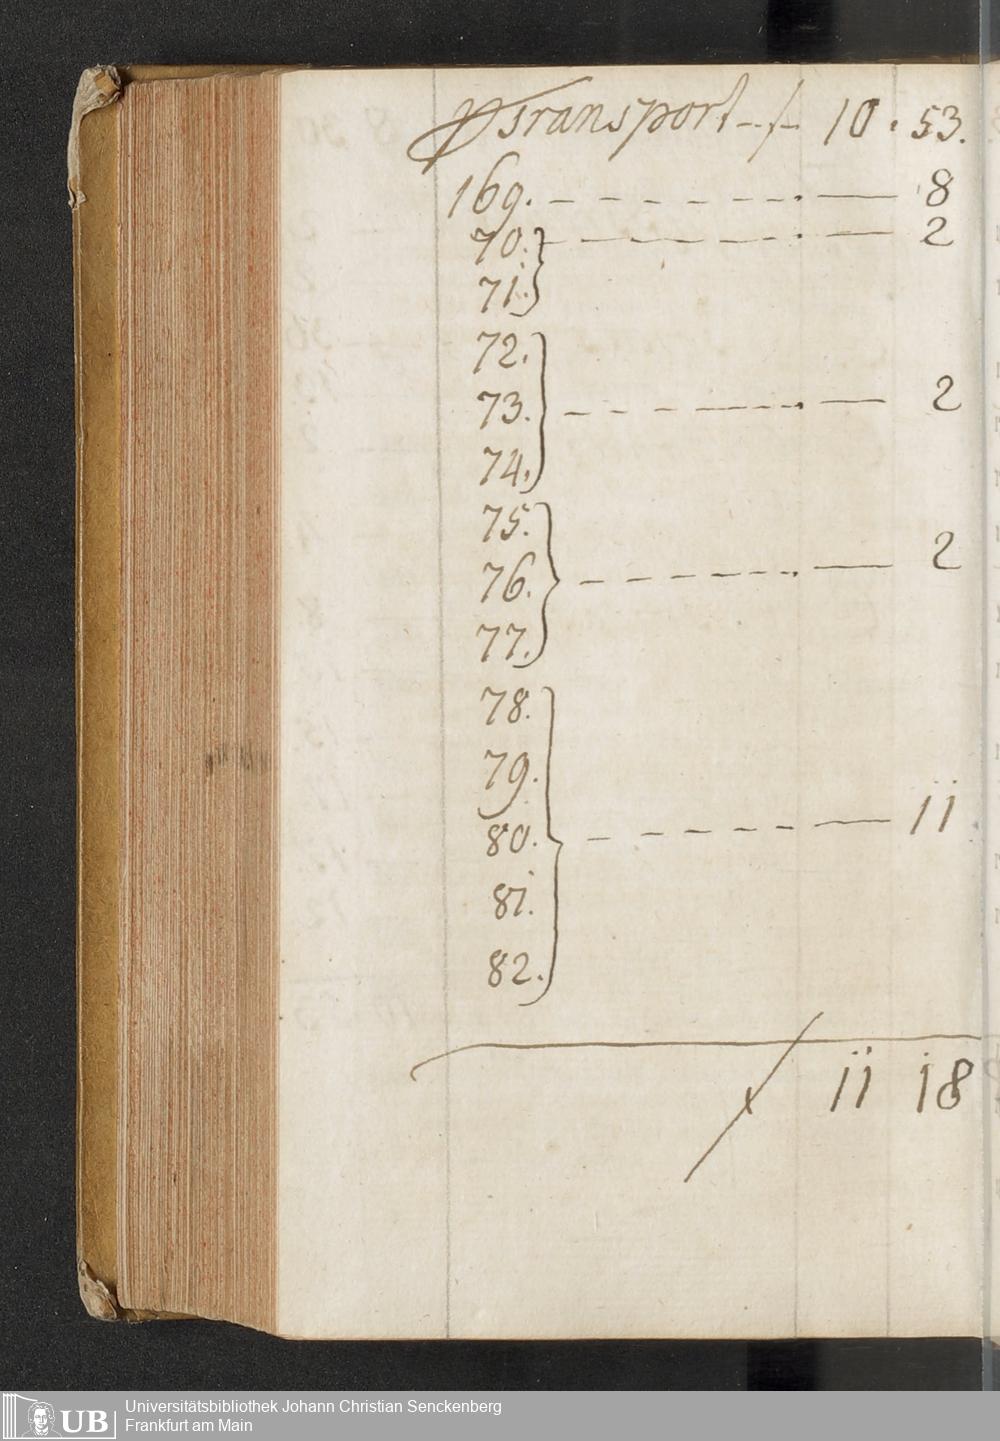 Transport - f - 10 . 53.
169. - - - - - - . — 8
70. - - - - - - . — 2
71.
72.
73. - - - - - . — 2
74.
75.
76. - - - - - . — 2
77.
78.
79.
80. - - - - - — 11
81.
82.
f 11 18
UB
Universitätsbibliothek Johann Christian Senckenberg
Frankfurt am Main